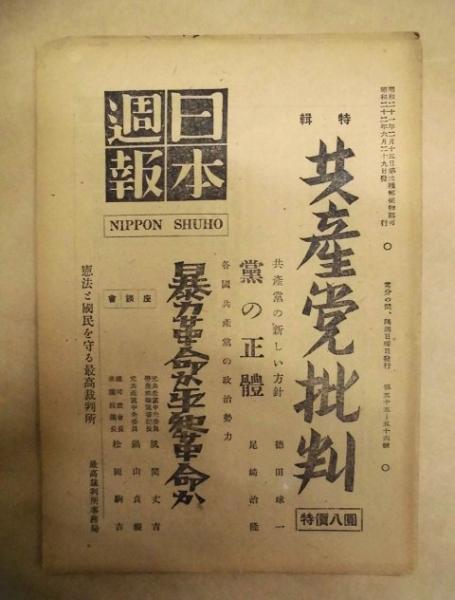 昭和二十一年二月十三日第三種郵便物認可
昭和二十二年六月二十九日發行
當分の間、隔週日曜日發行
第五十五—五十六號
特輯
共産党批判
特價八圓
共產黨の新しい方針
德田球一
黨の正體
尾崎治隆
各國共產黨の政治勢力
日本
週報
NIPPON SHUHO
座談會
暴力革命か平和革命か
風間丈吉
鍋山貞親
松岡駒吉
憲法と國民を守る最高裁判所
最高裁判所事務局